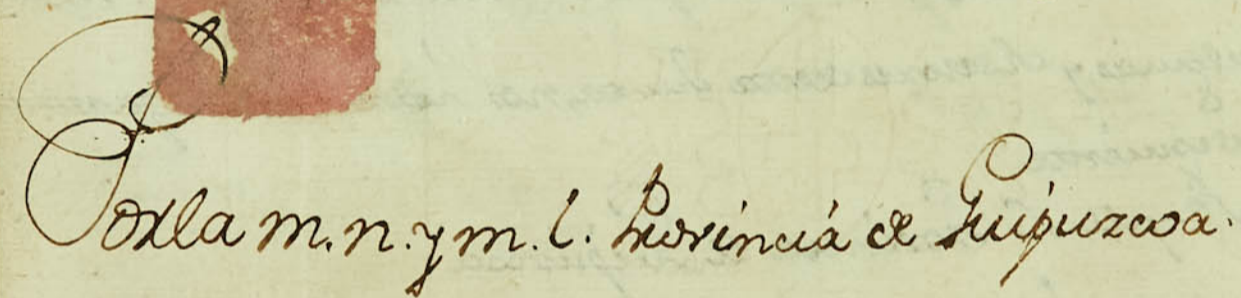 Porla m. n. y m. l. Provincia de Guipuzcoa.